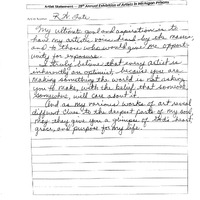 Artist Statement - 28th Annual Exhibition of Artists in Michigan Prisons
R.H.
My ultimate goal and aspiration is to
have my artistic voice heard by the masses,
and to those who would give me opport-
unity for exposure.
I truly believe that every artist is
inherently an optimist because you are
making something the world is not asking
you to make, with the belief that someone
somewhere, will care about it.
And as my various works of art reveal
different clues to the deepest parts of my soul,
may they give you a glimpse of God's heart,
grace, and purpose for my life.